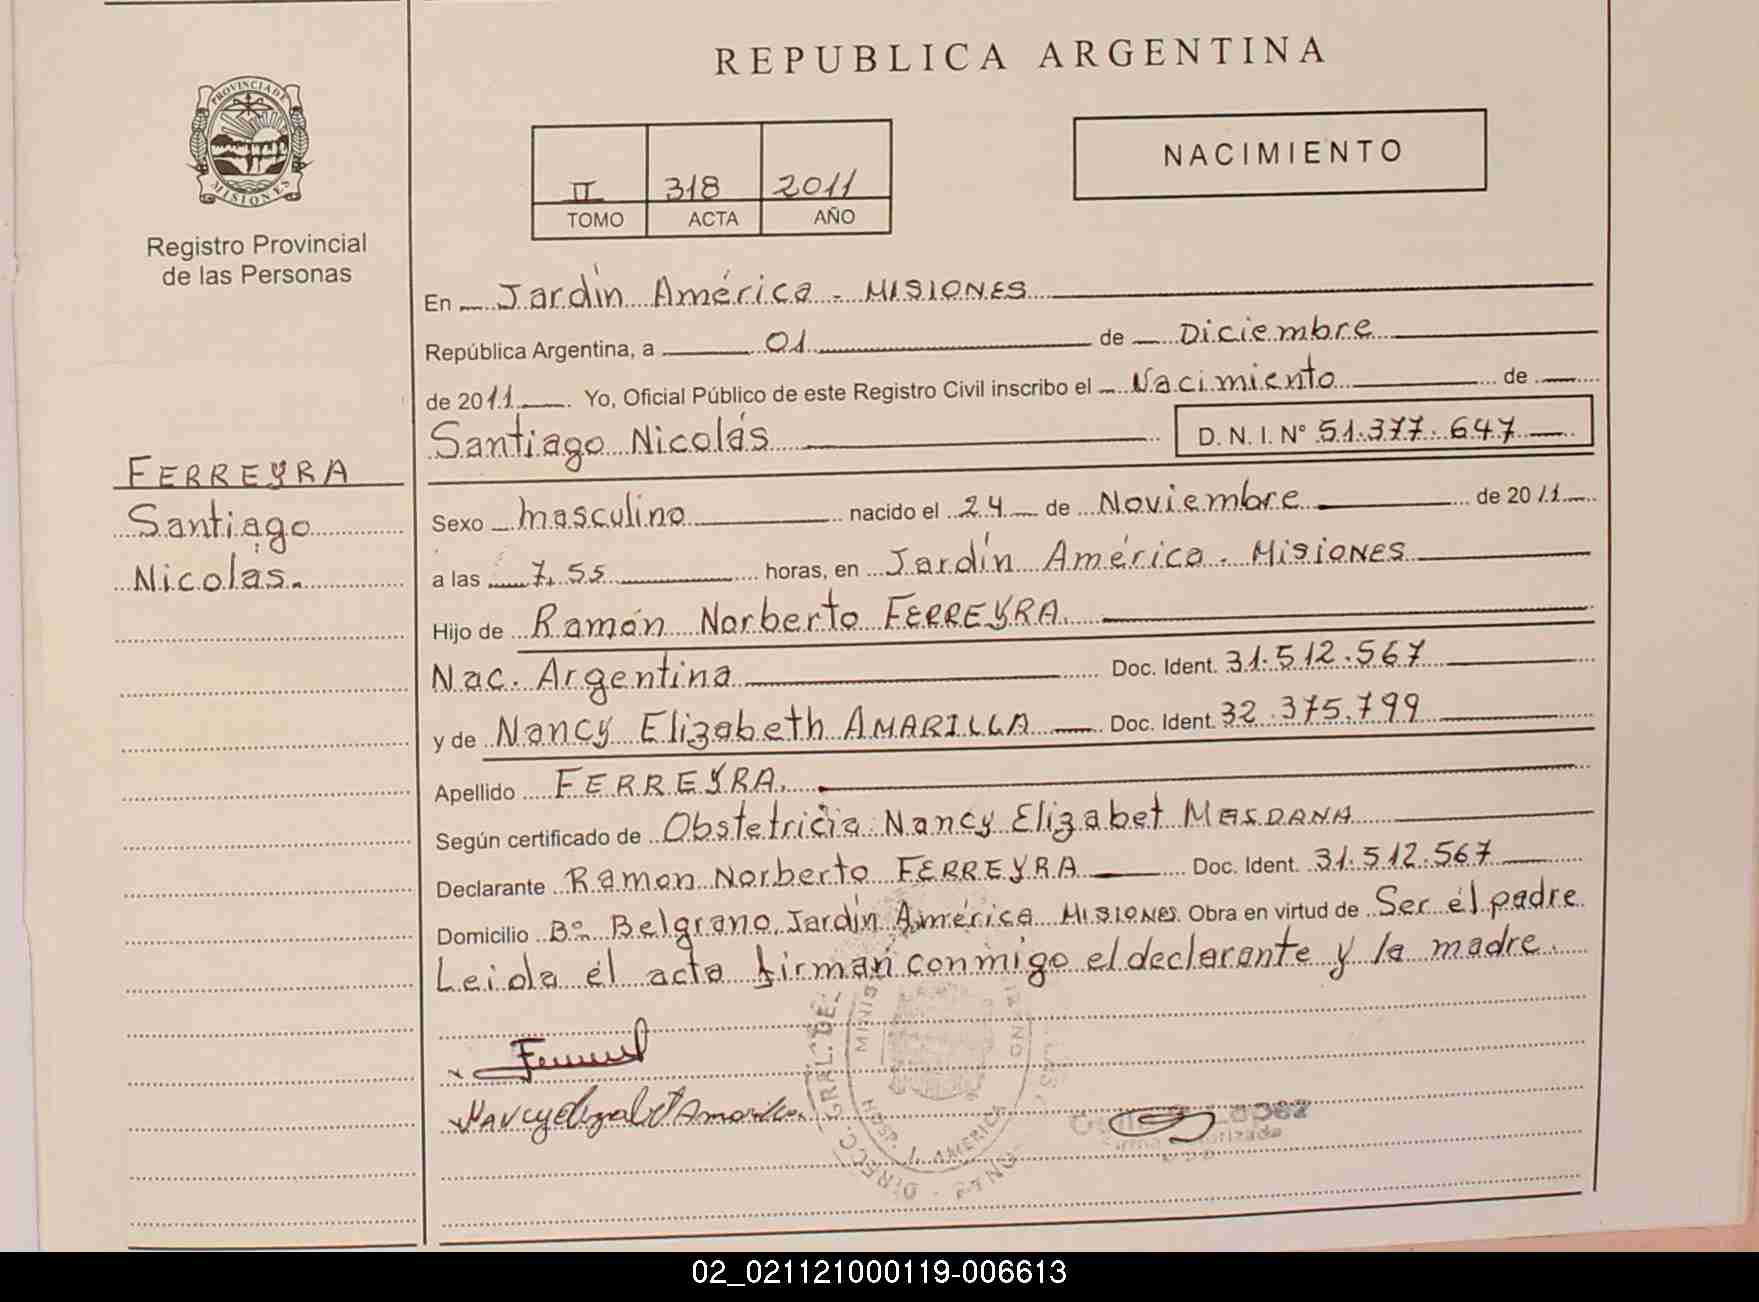 REPUBLICA ARGENTINA
PROVINCIA DE MISIONES
Registro Provincial
de las Personas
II 318 2011
TOMO ACTA AÑO
NACIMIENTO
FERREYRA
Santiago
Nicolás.
En Jardín América - MISIONES
República Argentina, a 01 de Diciembre
de 2011 Yo, Oficial Público de este Registro Civil inscribo el Nacimiento de
Santiago Nicolás D. N. I. N° 51.377.647
Sexo masculino nacido el 24 de Noviembre de 2011
a las 7,55 horas, en Jardín América - MISIONES
Hijo de Ramón Norberto FERREYRA
Nac. Argentina Doc. Ident. 31.512.567
y de Nancy Elizabeth AMARILLA Doc. Ident. 32.375.799
Apellido FERREYRA
Según certificado de Obstetricia Nancy Elizabet
Declarante Ramon Norberto FERREYRA Doc. Ident. 31.512.567
Domicilio Bº Belgrano, Jardín América MISIONES. Obra en virtud de Ser él padre
Leida él acta firman conmigo el declarante y la madre.
02_021121000119-006613